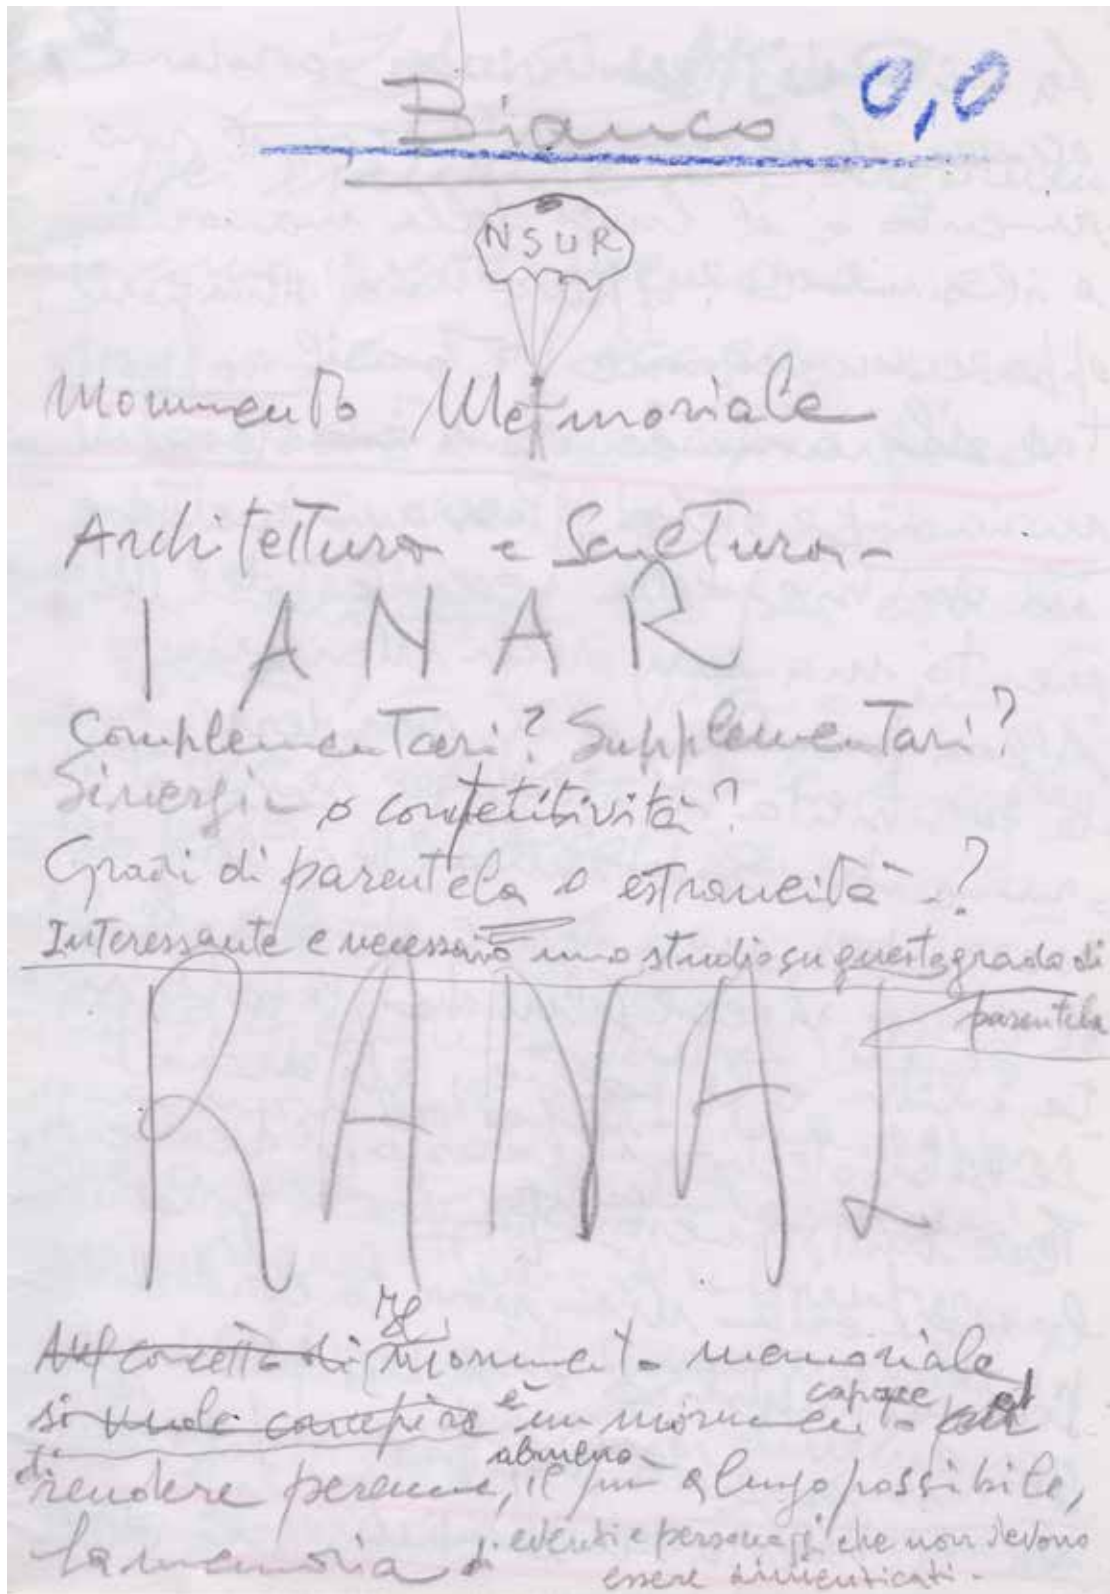 Bianco 0,0
NSUR
Monumento Memoriale
Architettura e Scultura -
IANAR
Complementari? Supplementari?
Sinergie o competitività?
Gradi di parentela o estraneità - ?
Interessante e necessario uno studio su questo grado di
parentela
RANAI
Nel concetto di Il monumento memoriale
si vuole concepire è un monumento capace
di rendere perenne, almeno il più a lungo possibile,
la memoria di eventi e personaggi che non devono
essere dimenticati -